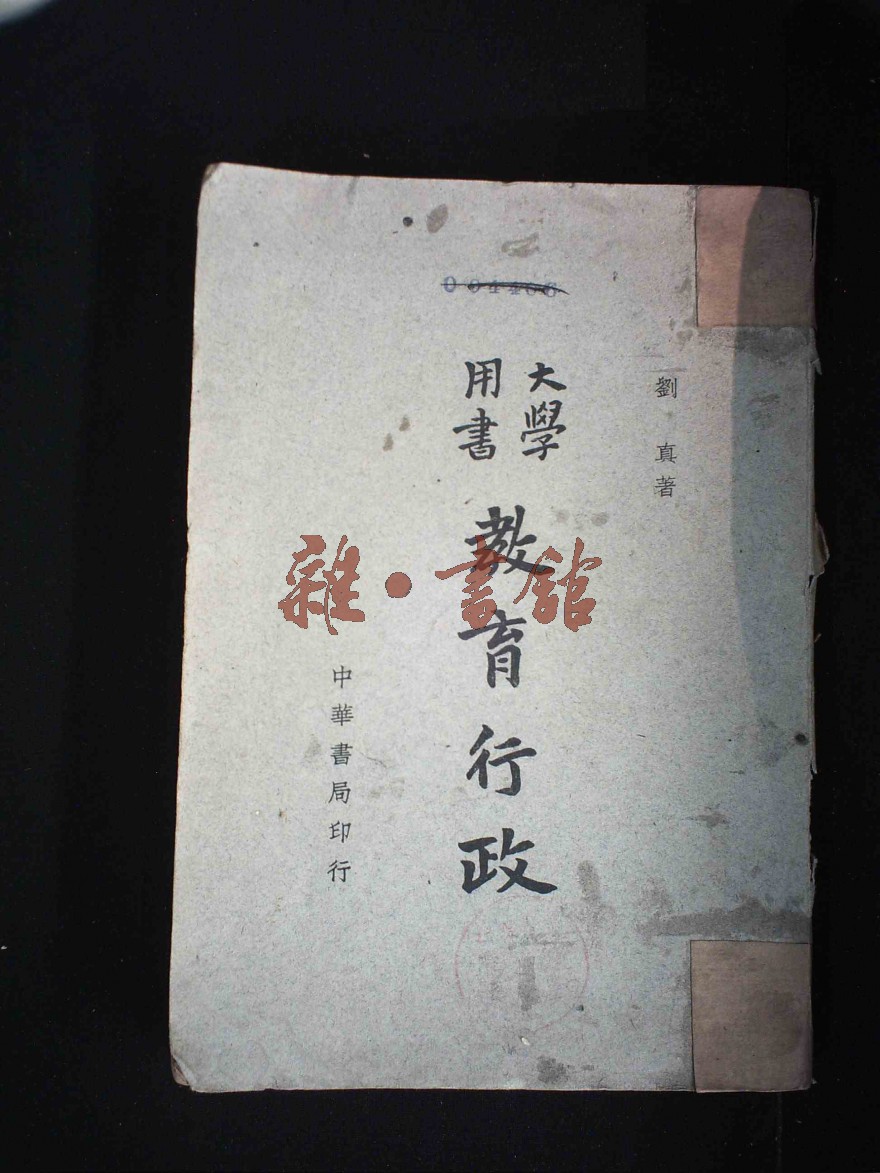 004406
劉真著
大學
用書
教育行政
中華書局印行
雜·書館